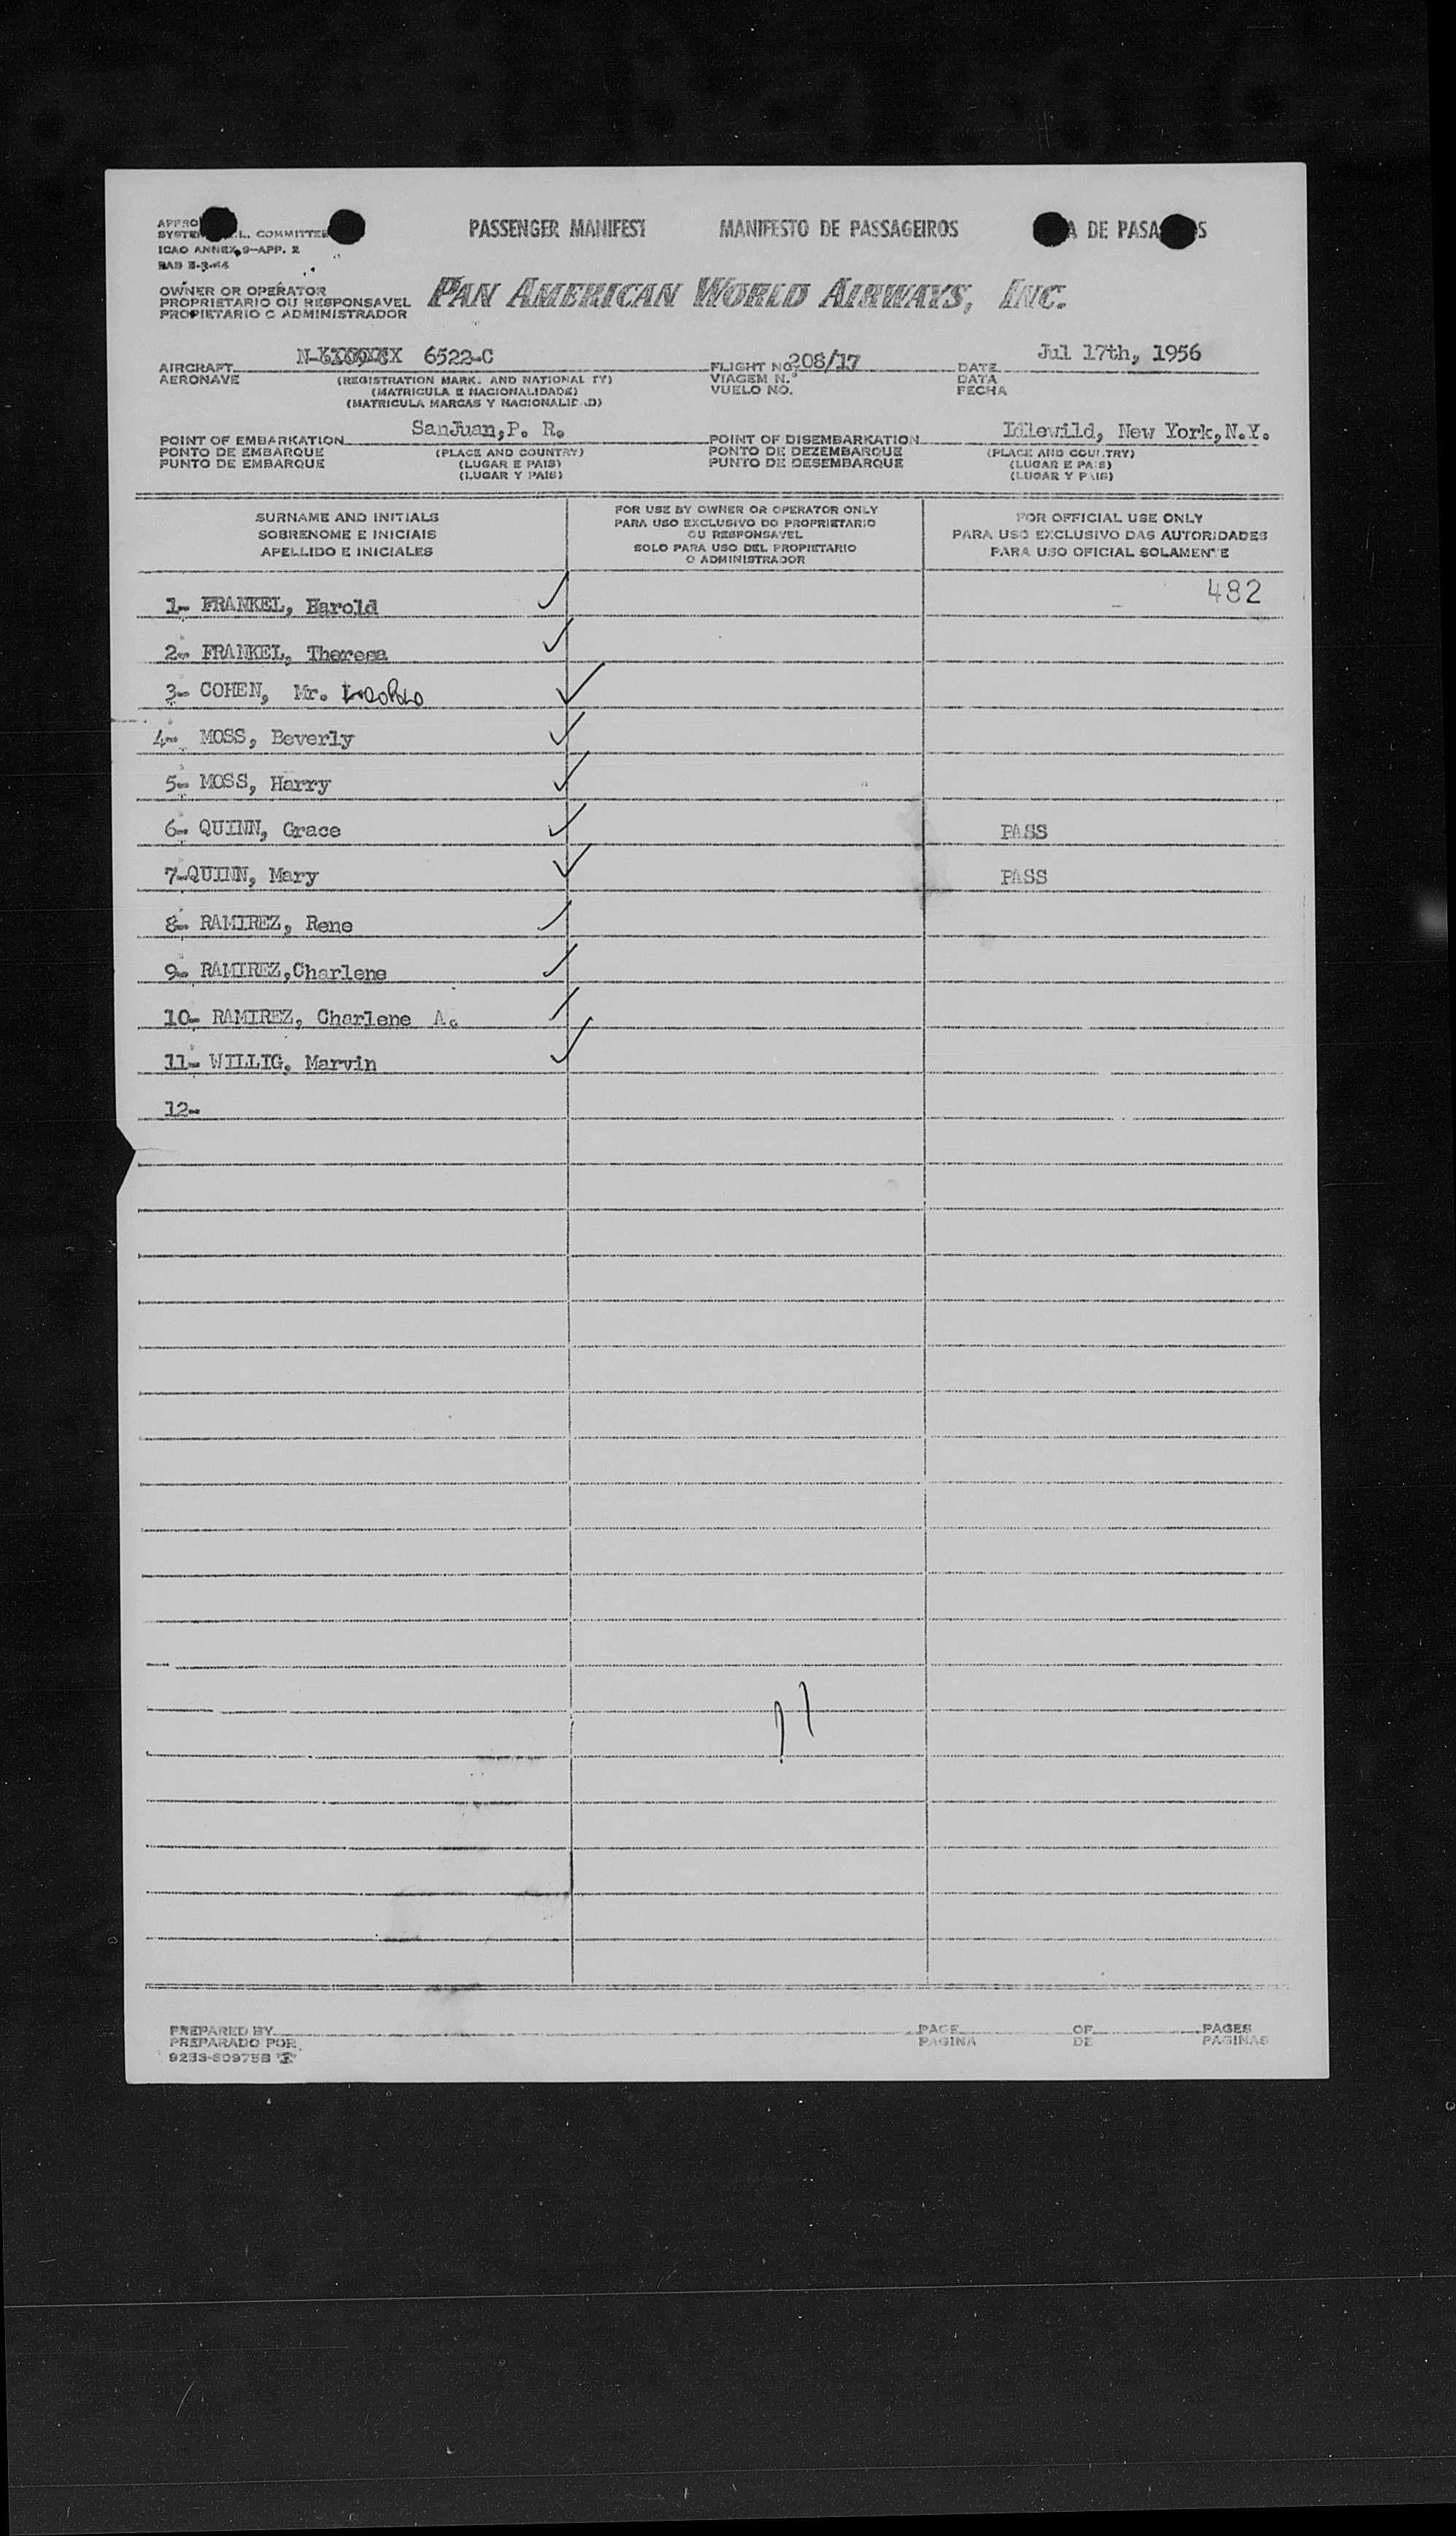 PASSENGER MANIFEST MANIFESTO DE PASSAGEIROS A DE PASA S
SYSTE L. COMMITTEE
ICAO ANNEX 9-APP. 2
OWNER OR OPERATOR
PROPRIETARIO OU RESPONSAVEL
PROPIETARIO O ADMINISTRADOR
PAN AMERICAN WORLD AIRWAYS, INC.
AIRCRAFT 6522-C FLIGHT NO. 208/17 DATE Jul 17th, 1956
AERONAVE (REGISTRATION MARK AND NATIONALITY) VIAGEM N.° DATA
(MATRICULA E NACIONALIDADE) VUELO NO. FECHA
(MATRICULA MARCAS Y NACIONALIDAD)
POINT OF EMBARKATION SanJuan,P. R. POINT OF DISEMBARKATION Idlewild, New York,N.Y.
PONTO DE EMBARQUE (PLACE AND COUNTRY) PONTO DE DEZEMBARQUE (PLACE AND COUNTRY)
PUNTO DE EMBARQUE (LUGAR E PAIS) PUNTO DE DESEMBARQUE (LUGAR E PAIS)
(LUGAR Y PAIS) (LUGAR Y PAIS)
SURNAME AND INITIALS
SOBRENOME E INICIAIS
APELLIDO E INICIALES
FOR USE BY OWNER OR OPERATOR ONLY
PARA USO EXCLUSIVO DO PROPRIETARIO
OU RESPONSAVEL
SOLO PARA USO DEL PROPIETARIO
O ADMINISTRADOR
FOR OFFICIAL USE ONLY
PARA USO EXCLUSIVO DAS AUTORIDADES
PARA USO OFICIAL SOLAMENTE
482
1- FRANKEL, Harold
2- FRANKEL, Theresa
3- COHEN, Mr.
4- MOSS, Beverly
5- MOSS, Harry
6- QUINN, Grace PASS
7-QUINN, Mary PASS
8- RAMIREZ, Rene
9- RAMIREZ,Charlene
10- RAMIREZ, Charlene A.
11- WILLIG, Marvin
12-
11
PREPARED BY PAGE OF PAGES
PREPARADO POR PAGINA DE PAGINAS